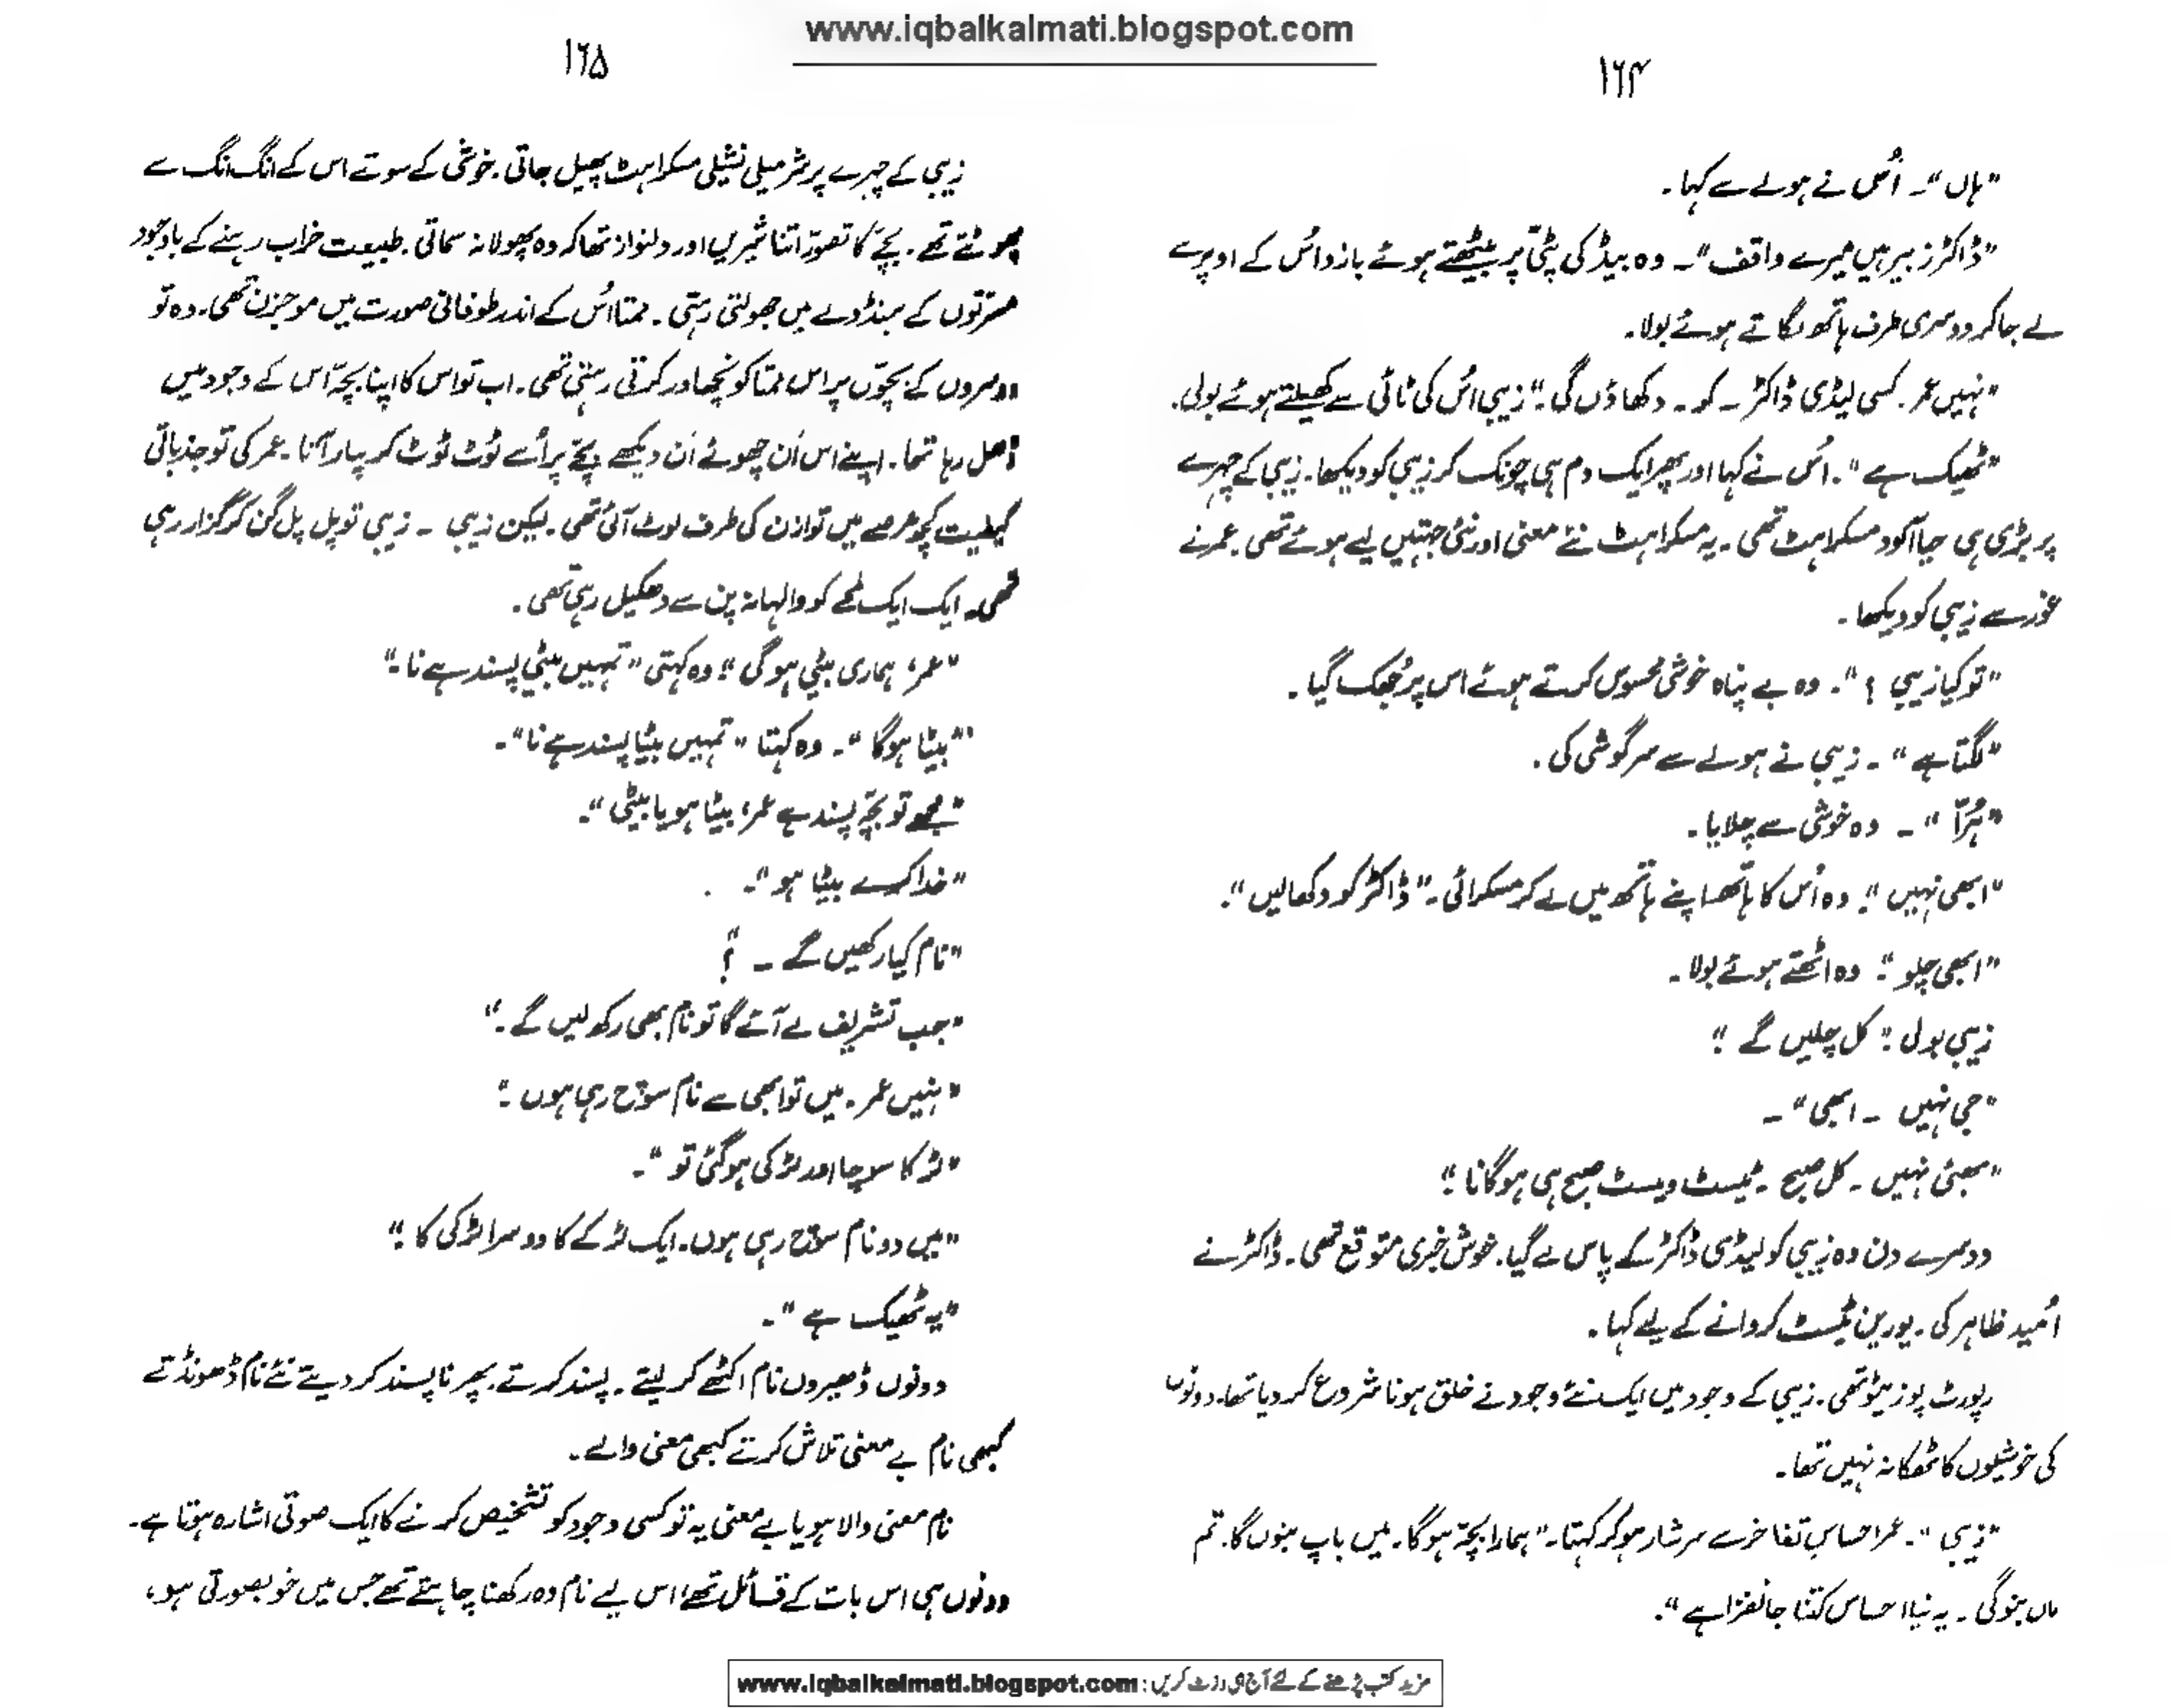 www.iqbalkalmati.blogspot.com
۱۶۴
"ہاں"۔ اُس نے ہولے سے کہا۔
"ڈاکٹر زبیر ہیں میرے واقف"۔ وہ بیڈ کی پٹی پر بیٹھتے ہوئے بازو اس کے اوپر سے
لے جا کر دوسری طرف ہاتھ لگاتے ہوئے بولا۔
"نہیں عمر۔ کسی لیڈی ڈاکٹر۔ کو۔ دکھاؤں گی"۔ زیبی اس کی ٹائی سے کھیلتے ہوئے بولی۔
"ٹھیک ہے"۔ اُس نے کہا اور پھر ایک دم ہی چونک کر زیبی کو دیکھا۔ زیبی کے چہرے
پر بڑی ہی حیا آلود مسکراہٹ تھی۔ یہ مسکراہٹ نئے معنی اور نئی جہتیں لیے ہوئے تھی۔ عمر نے
غور سے زیبی کو دیکھا۔
"تو کیا زیبی ؟"۔ وہ بے پناہ خوشی محسوس کرتے ہوئے اس پر جُھک گیا۔
"لگتا ہے"۔ زیبی نے ہولے سے سرگوشی کی۔
"ہُرّا"۔ وہ خوشی سے چلایا۔
"ابھی نہیں"۔ وہ اُس کا ہاتھ اپنے ہاتھ میں لے کر مسکرائی۔ "ڈاکٹر کو دکھا لیں"۔
"ابھی چلو"۔ وہ اٹھتے ہوئے بولا۔
زیبی بولی۔ "کل چلیں گے"۔
"جی نہیں ۔ ابھی"۔
"بھئی نہیں ۔ کل صبح ۔ ٹیسٹ ویسٹ صبح ہی ہو گا نا"۔
دوسرے دن وہ زیبی کو لیڈی ڈاکٹر کے پاس لے گیا۔ خوش خبری متوقع تھی۔ ڈاکٹر نے
اُمید ظاہر کی۔ یورین ٹیسٹ کروانے کے لیے کہا۔
رپورٹ پوزیٹو تھی۔ زیبی کے وجود میں ایک نئے وجود نے خلق ہونا شروع کر دیا تھا۔ دونوں
کی خوشیوں کا ٹھکانہ نہیں تھا۔
"زیبی"۔ عمر احساسِ تفاخر سے سرشار ہو کر کہتا۔ "ہمارا بچّہ ہو گا۔ میں باپ بنوں گا۔ تم
ماں بنو گی۔ یہ نیا احساس کتنا جانفزا ہے"۔
۱۶۵
زیبی کے چہرے پر شرمیلی نشیلی مسکراہٹ پھیل جاتی۔ خوشی کے سوتے اس کے انگ انگ سے
پھوٹتے تھے۔ بچّے کا تصور اتنا شیریں اور دلنواز تھا کہ وہ پھولا نہ سماتی۔ طبیعت خراب رہنے کے باوجود
مسرتوں کے ہنڈولے میں جھولتی رہتی۔ ممتا اُس کے اندر طوفانی صورت میں موجزن تھی۔ وہ تو
دوسروں کے بچّوں پر اس ممتا کو نچھاور کرتی رہتی تھی۔ اب تو اس کا اپنا بچّہ اس کے وجود میں
ڈھل رہا تھا۔ اپنے اس اَن چھوئے اَن دیکھے بچّے پر اُسے ٹوٹ ٹوٹ کر پیار آتا۔ عمر کی تو جذباتی
کیفیت کچھ عرصے میں توازن کی طرف لوٹ آئی تھی۔ لیکن زیبی ۔ زیبی تو پل پل گن کر گزار رہی
تھی۔ ایک ایک لمحے کو والہانہ پن سے دھکیل رہی تھی۔
"عمر، ہماری بیٹی ہو گی"۔ وہ کہتی "تمہیں بیٹی پسند ہے نا"۔
"بیٹا ہو گا"۔ وہ کہتا "تمہیں بیٹا پسند ہے نا"۔
"مجھے تو بچّہ پسند ہے عمر، بیٹا ہو یا بیٹی"۔
"خدا کرے بیٹا ہو"۔
"نام کیا رکھیں گے ۔ ؟"
"جب تشریف لے آئے گا تو نام بھی رکھ لیں گے۔"
"نہیں عمر۔ میں تو ابھی سے نام سوچ رہی ہوں۔"
"لڑکا سوچا اور لڑکی ہو گئی تو"۔
"میں دو نام سوچ رہی ہوں۔ ایک لڑکے کا دوسرا لڑکی کا"۔
"یہ ٹھیک ہے"۔
دونوں ڈھیروں نام اکٹھے کر لیتے۔ پسند کرتے۔ پھر ناپسند کر دیتے نئے نام ڈھونڈتے
کبھی نام بے معنی تلاش کرتے کبھی معنی والے۔
نام معنی والا ہو یا بے معنی یہ تو کسی وجود کو تشخیص کرنے کا ایک صوتی اشارہ ہوتا ہے۔
دونوں ہی اس بات کے قائل تھے اس لیے نام وہ رکھنا چاہتے تھے جس میں خوبصورتی ہو،
مزید کتب پڑھنے کے لئے آج ہی وزٹ کریں : www.iqbalkalmati.blogspot.com